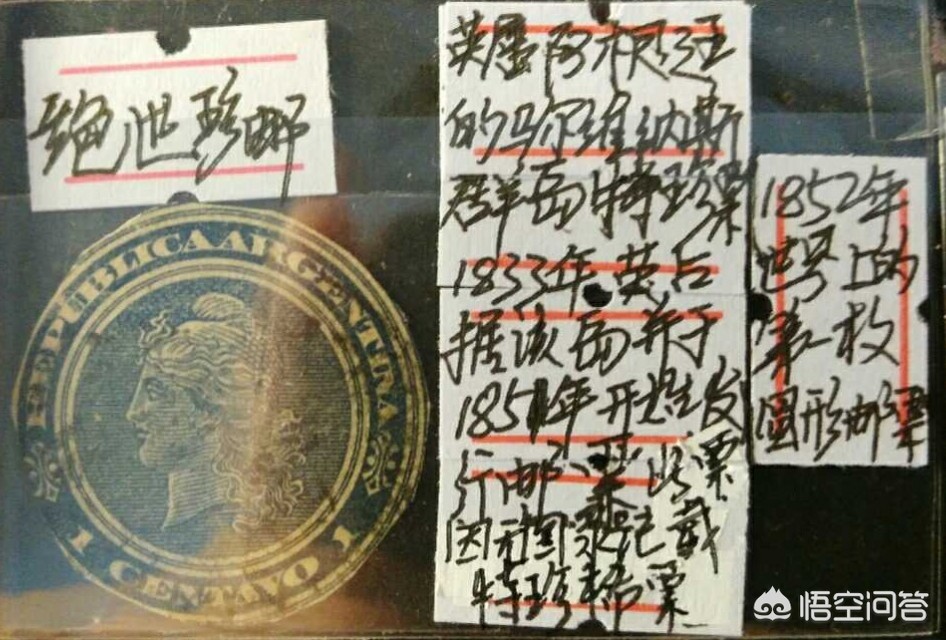 绝世珍邮
REPÚBLICA ARGENTINA
1 CENTAVO 1
英属阿根廷
的马尔维纳斯
群岛特珍票
1833年英占
据该岛并于
1851年开始发
行邮票此票
因和国家记载
特珍稀票
1852年
世界上的
第一枚
圆形邮票
悟空问答